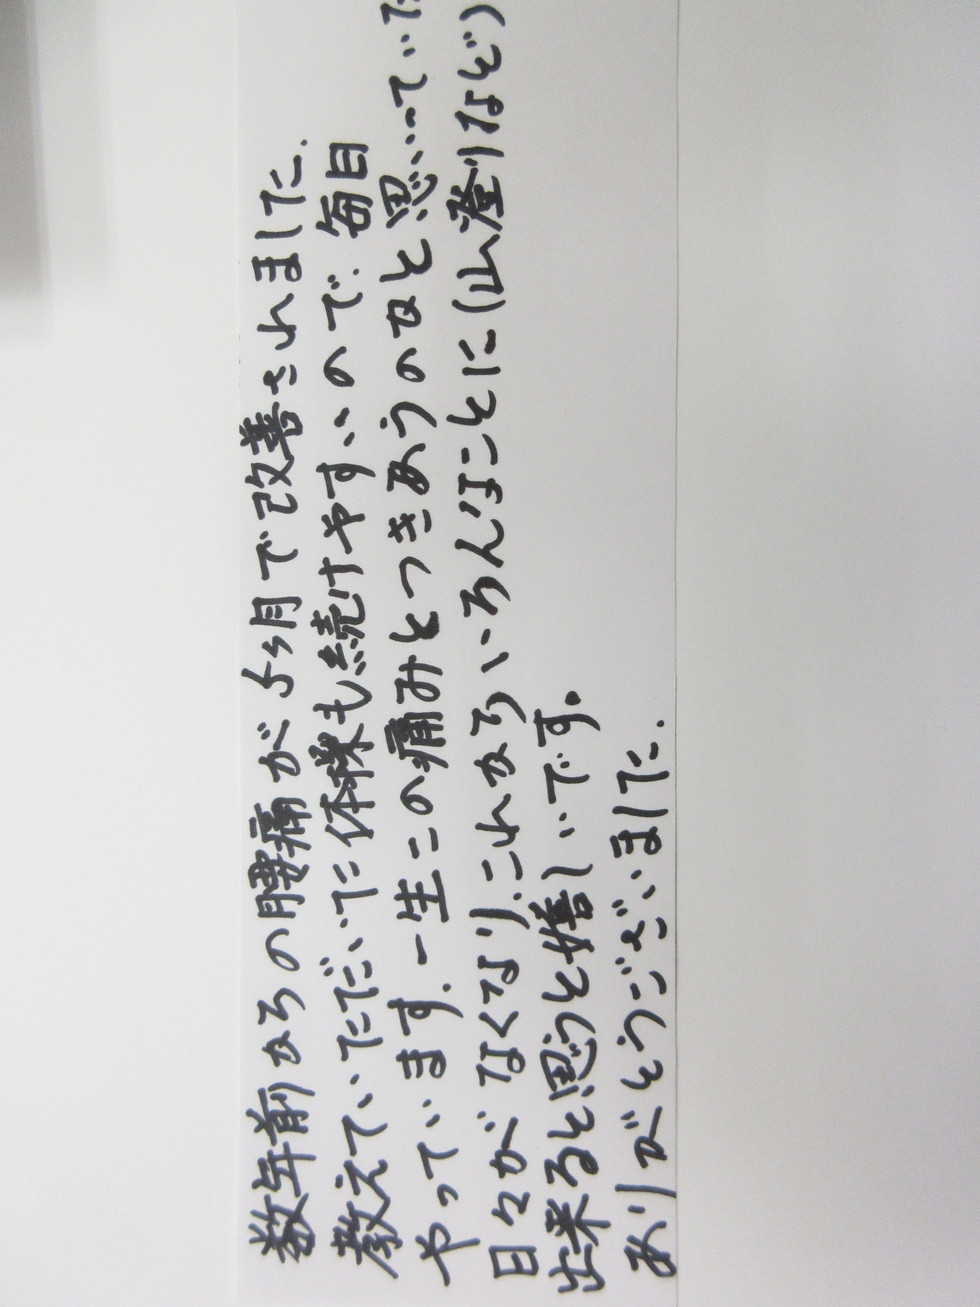 数年前からの腰痛が5ヶ月で改善されました.
教えていただいた体操も続けやすいので.毎日
やっています.一生この痛みとつきあうのかと思っていた
日々がなくなり.これからいろんなことに(山登りなど)
出来ると思うと嬉しいです.
ありがとうございました.